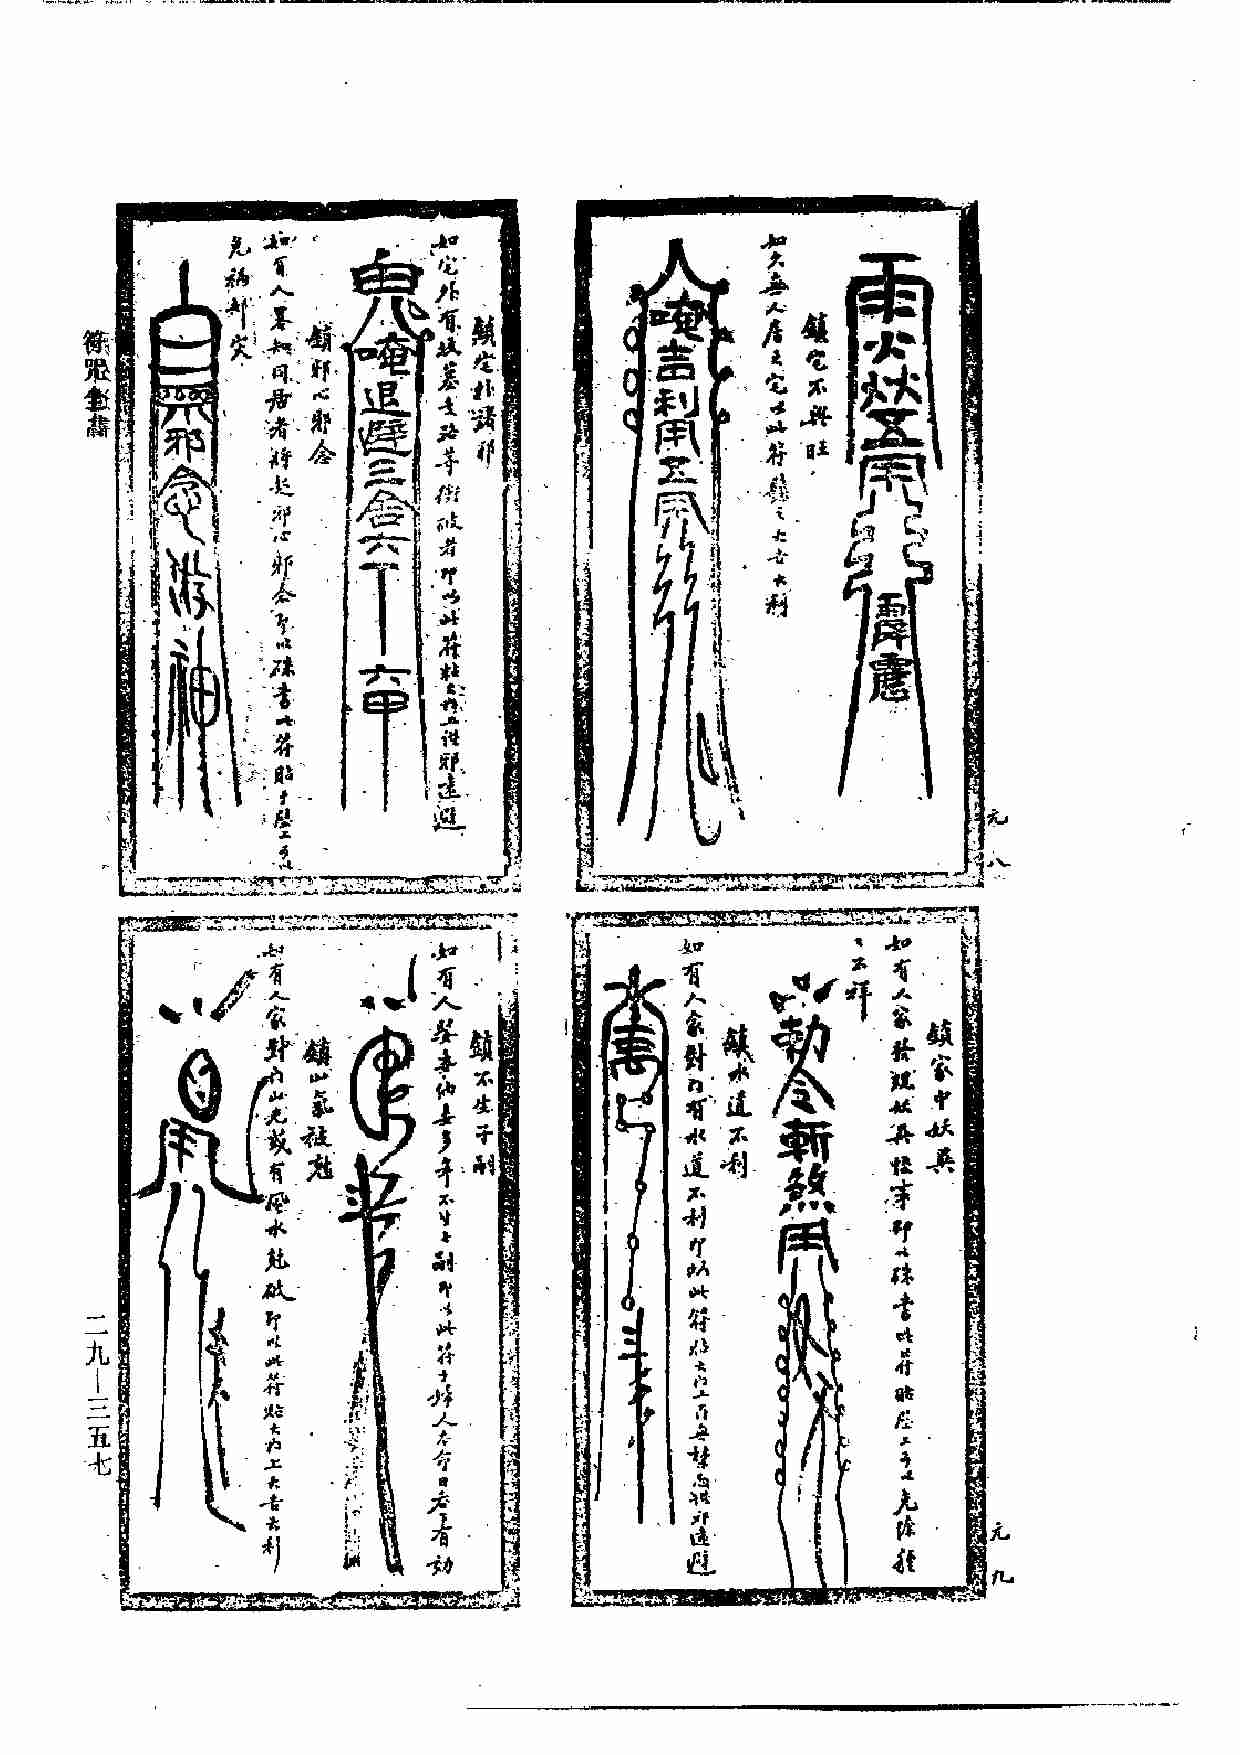 元八
鎮宅不興旺
如久無人居之宅以此符鎮之大吉大利
唵吉利用
鎮宅外諸邪
如宅外有坟墓走路等衝破者即以此符粘大門上諸邪遠避
鬼唵退避三舍六丁六甲
鎮邪心邪念
如有人暮知同居者將起邪心邪念即以硃書此符貼于壁上可以
免禍却灾
邪念游神
元九
鎮家中妖異
如有人家發現妖異怪事即以硃書此符貼壁上可以免除種
々不祥
勅令斬煞用
鎮水道不利
如有人家對門有水道不利即以此符貼大門上百無禁忌諸邪遠避
鎮不生子嗣
如有人娶妻納妾多年不生子嗣即以此符于婦人吞食日吞有効
鎮山氣被尅
如有人家對門山尅或有風水尅破即以此符貼大門上大吉大利
符咒全書
二九—三五七